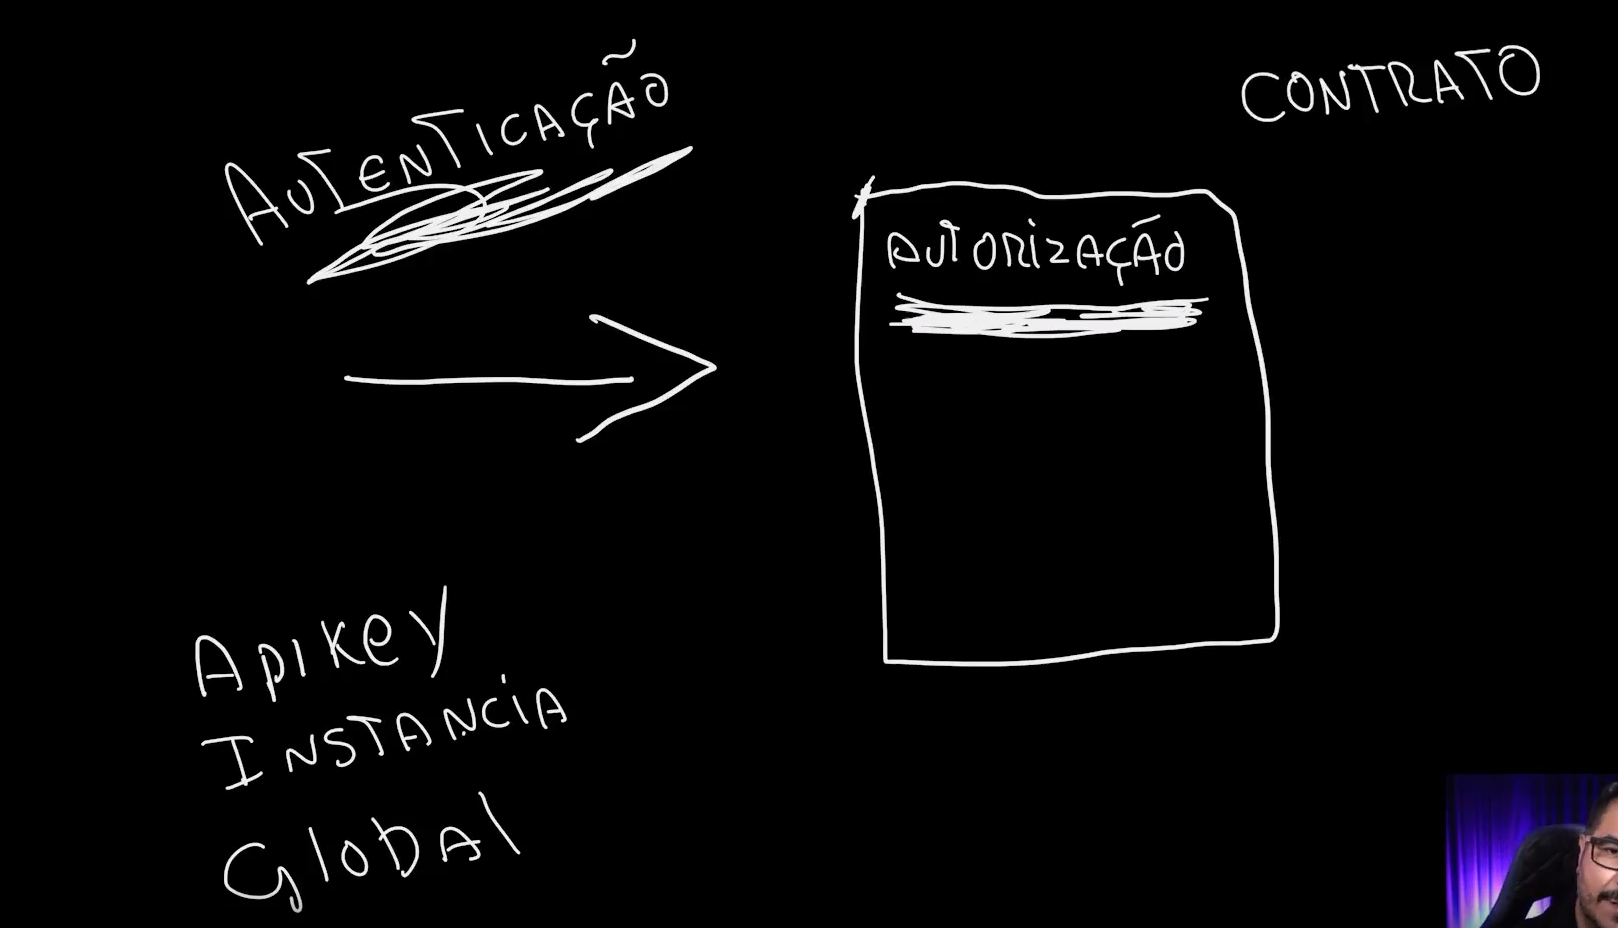 AUTENTICAÇÃO
CONTRATO
AUTORIZAÇÃO
ApiKey
INSTANCIA
GlobAl